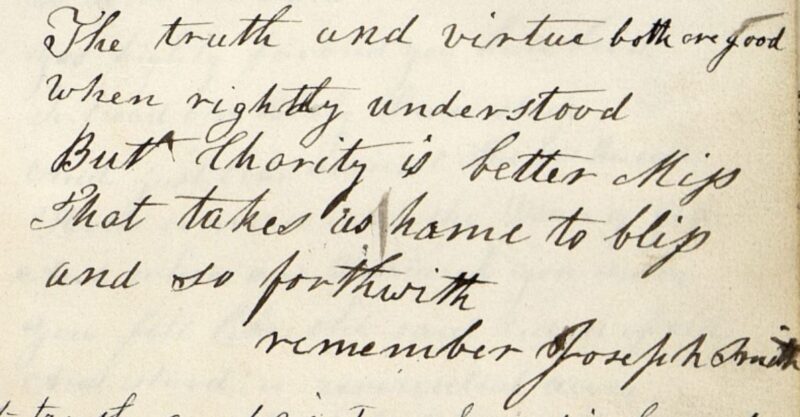 The truth and virtue both are good
When rightly understood
But Charity is better Miss
That takes us home to bliss
and so forthwith
remember Joseph Smith